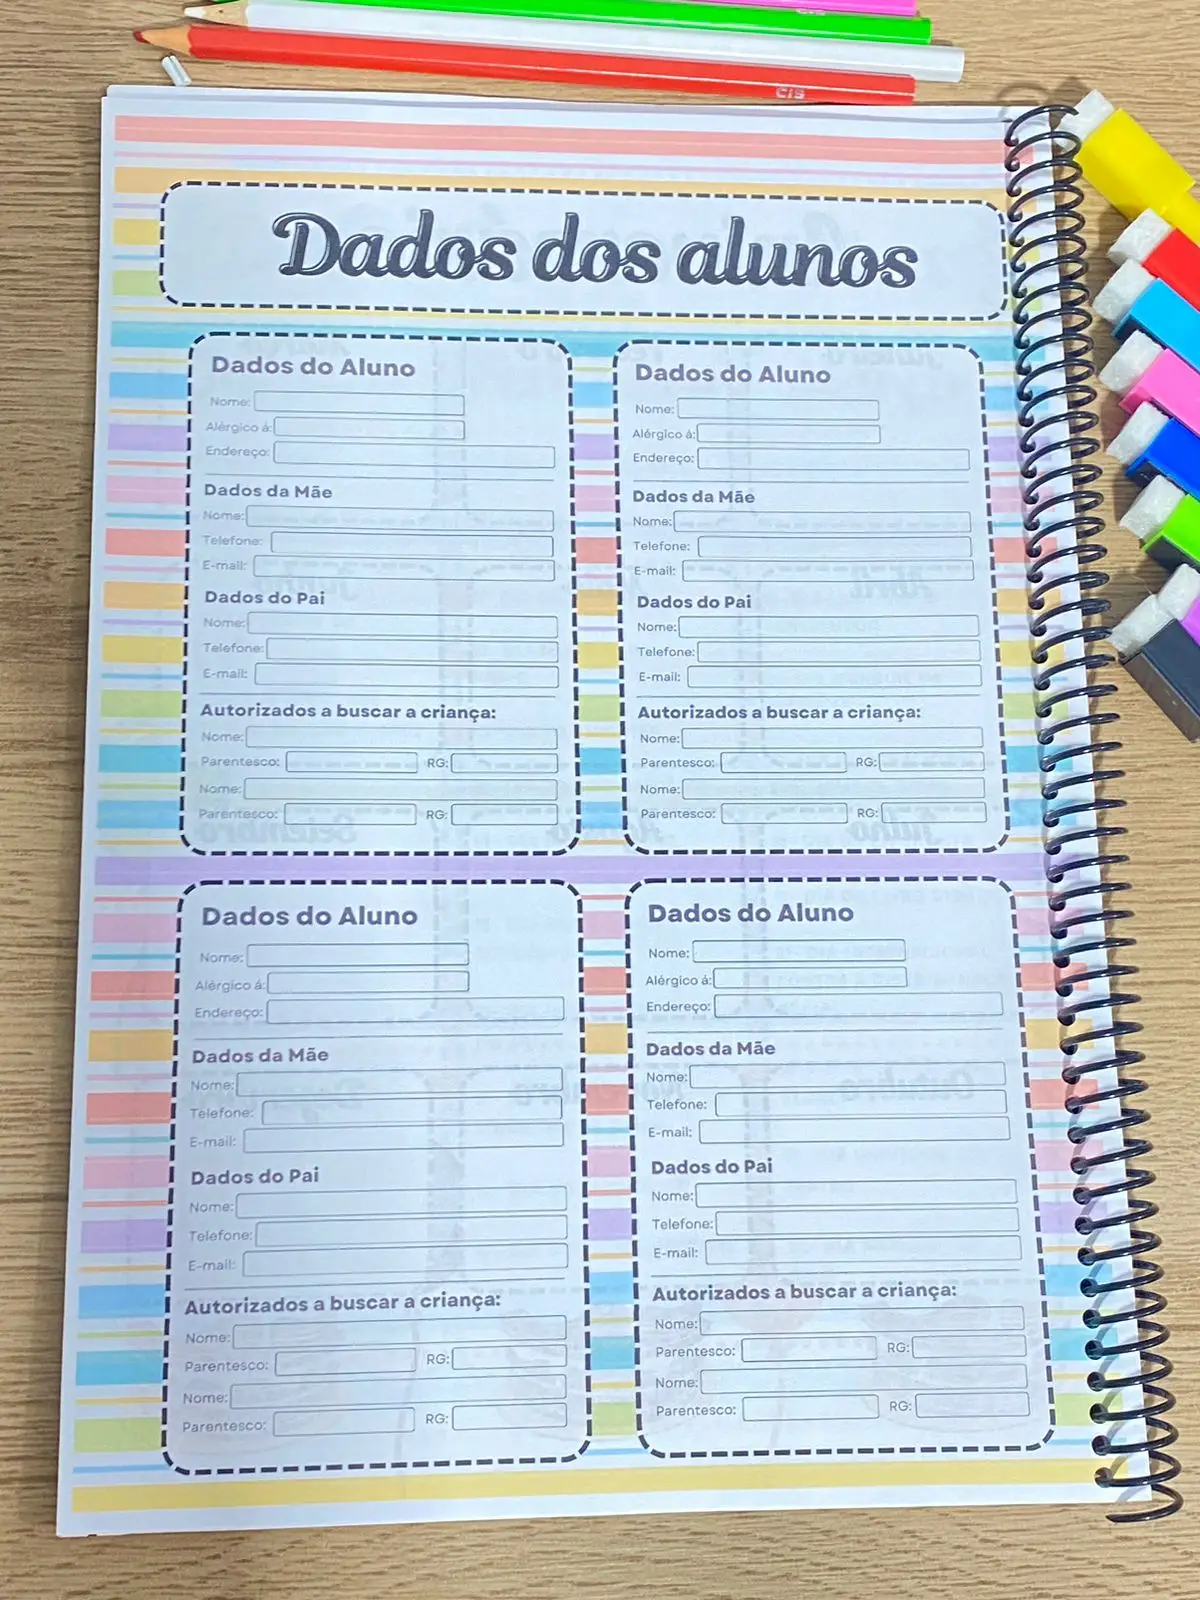 CiS
CIS
Dados dos alunos
Dados do Aluno
Nome:
Alérgico á:
Endereço:
Dados da Mãe
Nome:
Telefone:
E-mail:
Dados do Pai
Nome:
Telefone:
E-mail:
Autorizados a buscar a criança:
Nome:
Parentesco: RG:
Nome:
Parentesco: RG:
Dados do Aluno
Nome:
Alérgico á:
Endereço:
Dados da Mãe
Nome:
Telefone:
E-mail:
Dados do Pai
Nome:
Telefone:
E-mail:
Autorizados a buscar a criança:
Nome:
Parentesco: RG:
Nome:
Parentesco: RG:
Dados do Aluno
Nome:
Alérgico á:
Endereço:
Dados da Mãe
Nome:
Telefone:
E-mail:
Dados do Pai
Nome:
Telefone:
E-mail:
Autorizados a buscar a criança:
Nome:
Parentesco: RG:
Nome:
Parentesco: RG:
Dados do Aluno
Nome:
Alérgico á:
Endereço:
Dados da Mãe
Nome:
Telefone:
E-mail:
Dados do Pai
Nome:
Telefone:
E-mail:
Autorizados a buscar a criança:
Nome:
Parentesco: RG:
Nome:
Parentesco: RG: